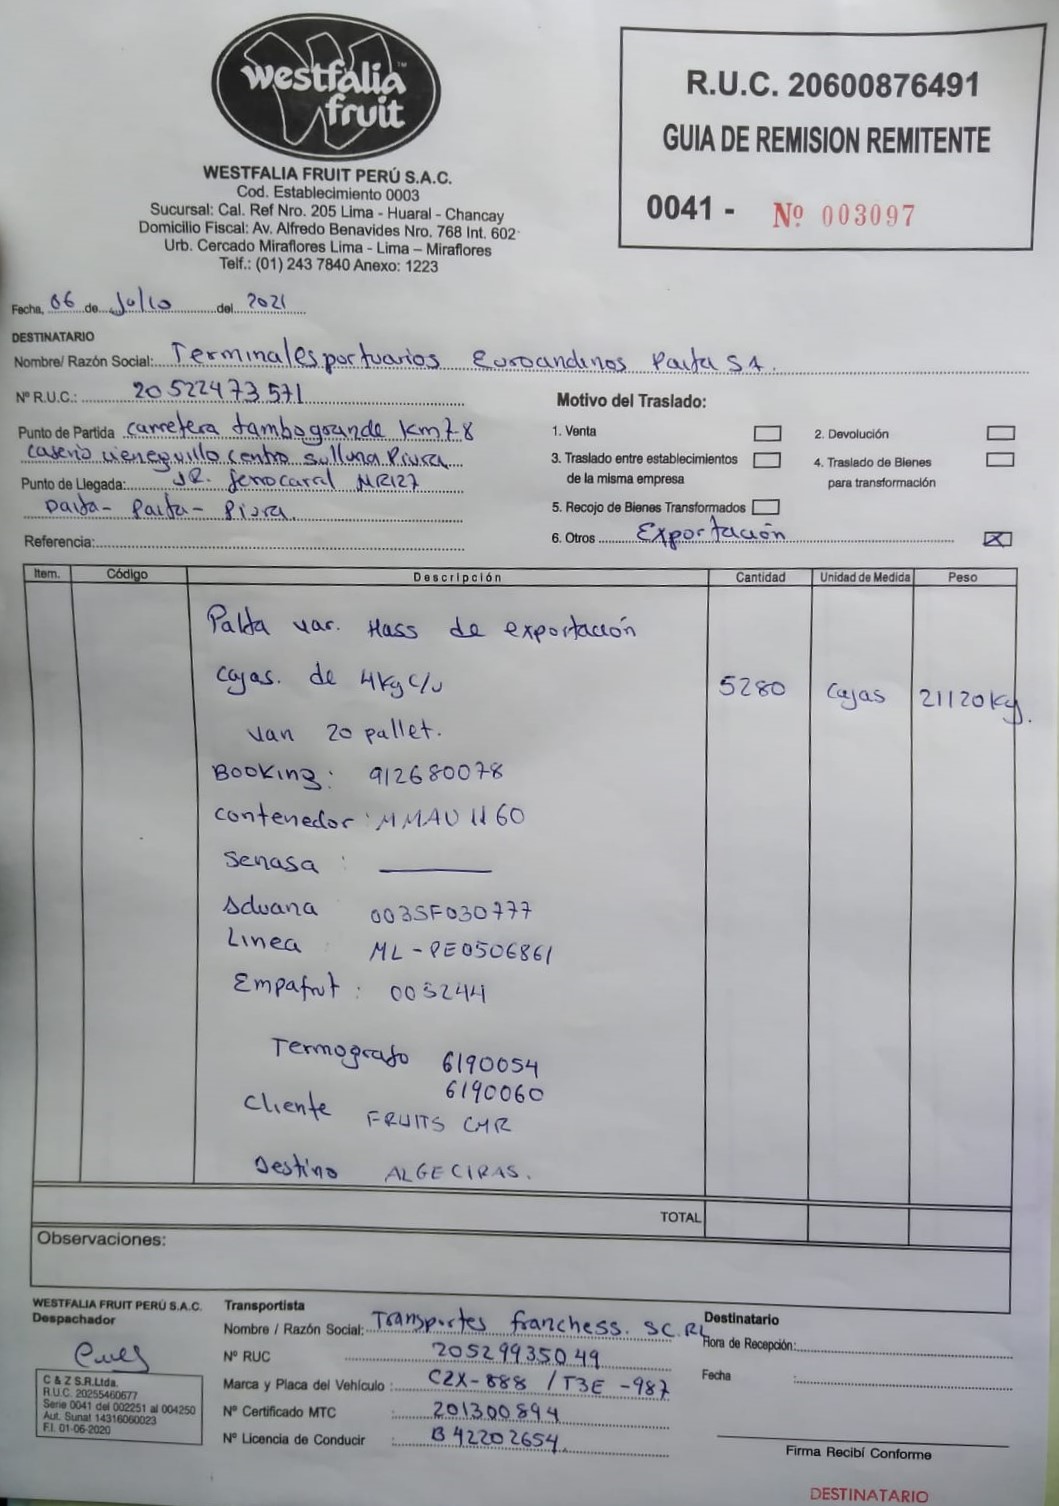 westfalia™
fruit
WESTFALIA FRUIT PERÚ S.A.C.
Cod. Establecimiento 0003
Sucursal: Cal. Ref Nro. 205 Lima - Huaral - Chancay
Domicilio Fiscal: Av. Alfredo Benavides Nro. 768 Int. 602
Urb. Cercado Miraflores Lima - Lima – Miraflores
Telf.: (01) 243 7840 Anexo: 1223
R.U.C. 20600876491
GUIA DE REMISION REMITENTE
0041 - Nº 003097
Fecha, 06 de Julio del 2021
DESTINATARIO
Nombre/ Razón Social: Terminales portuarios Euroandinos Paita SA.
Nº R.U.C.: 20522473571
Punto de Partida carretera tambogrande Km 7.8
caserio cieneguillo centro sullana Piura
Punto de Llegada: JR. ferrocaral NR127
Paita - Paita - Piura
Referencia:
Motivo del Traslado:
1. Venta
2. Devolución
3. Traslado entre establecimientos
de la misma empresa
4. Traslado de Bienes
para transformación
5. Recojo de Bienes Transformados
6. Otros Exportación X
Item. Código Descripción Cantidad Unidad de Medida Peso
Palta var. Hass de exportación
cajas. de 4kg c/u 5280 cajas 21120kg.
van 20 pallet.
Booking: 912680078
contenedor: MMAU 1160
Senasa :
Aduana 003SF030777
Linea ML-PE0506861
Empafrut : 005244
Termografo 6190054
6190060
Cliente FRUITS CMR
Destino ALGECIRAS.
TOTAL
Observaciones:
WESTFALIA FRUIT PERÚ S.A.C.
Despachador
C & Z S.R.Ltda.
R.U.C. 20255460677
Serie 0041 del 002251 al 004250
Aut. Sunat 14316060023
F.I. 01-06-2020
Transportista
Nombre / Razón Social: Transportes franchess. SC.RL
Nº RUC 20529935049
Marca y Placa del Vehículo : C2X-888 / T3E-987
Nº Certificado MTC : 201300894
Nº Licencia de Conducir : B42202654
Destinatario
Hora de Recepción:
Fecha :
Firma Recibí Conforme
DESTINATARIO